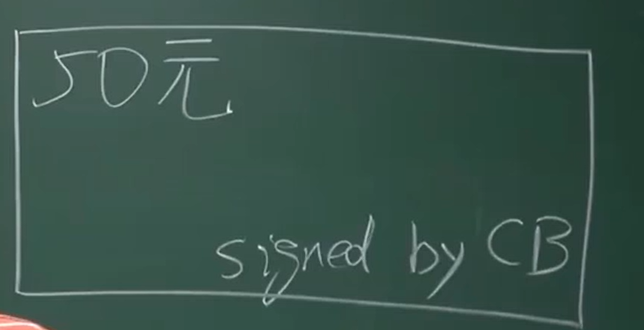 50元
signed by CB